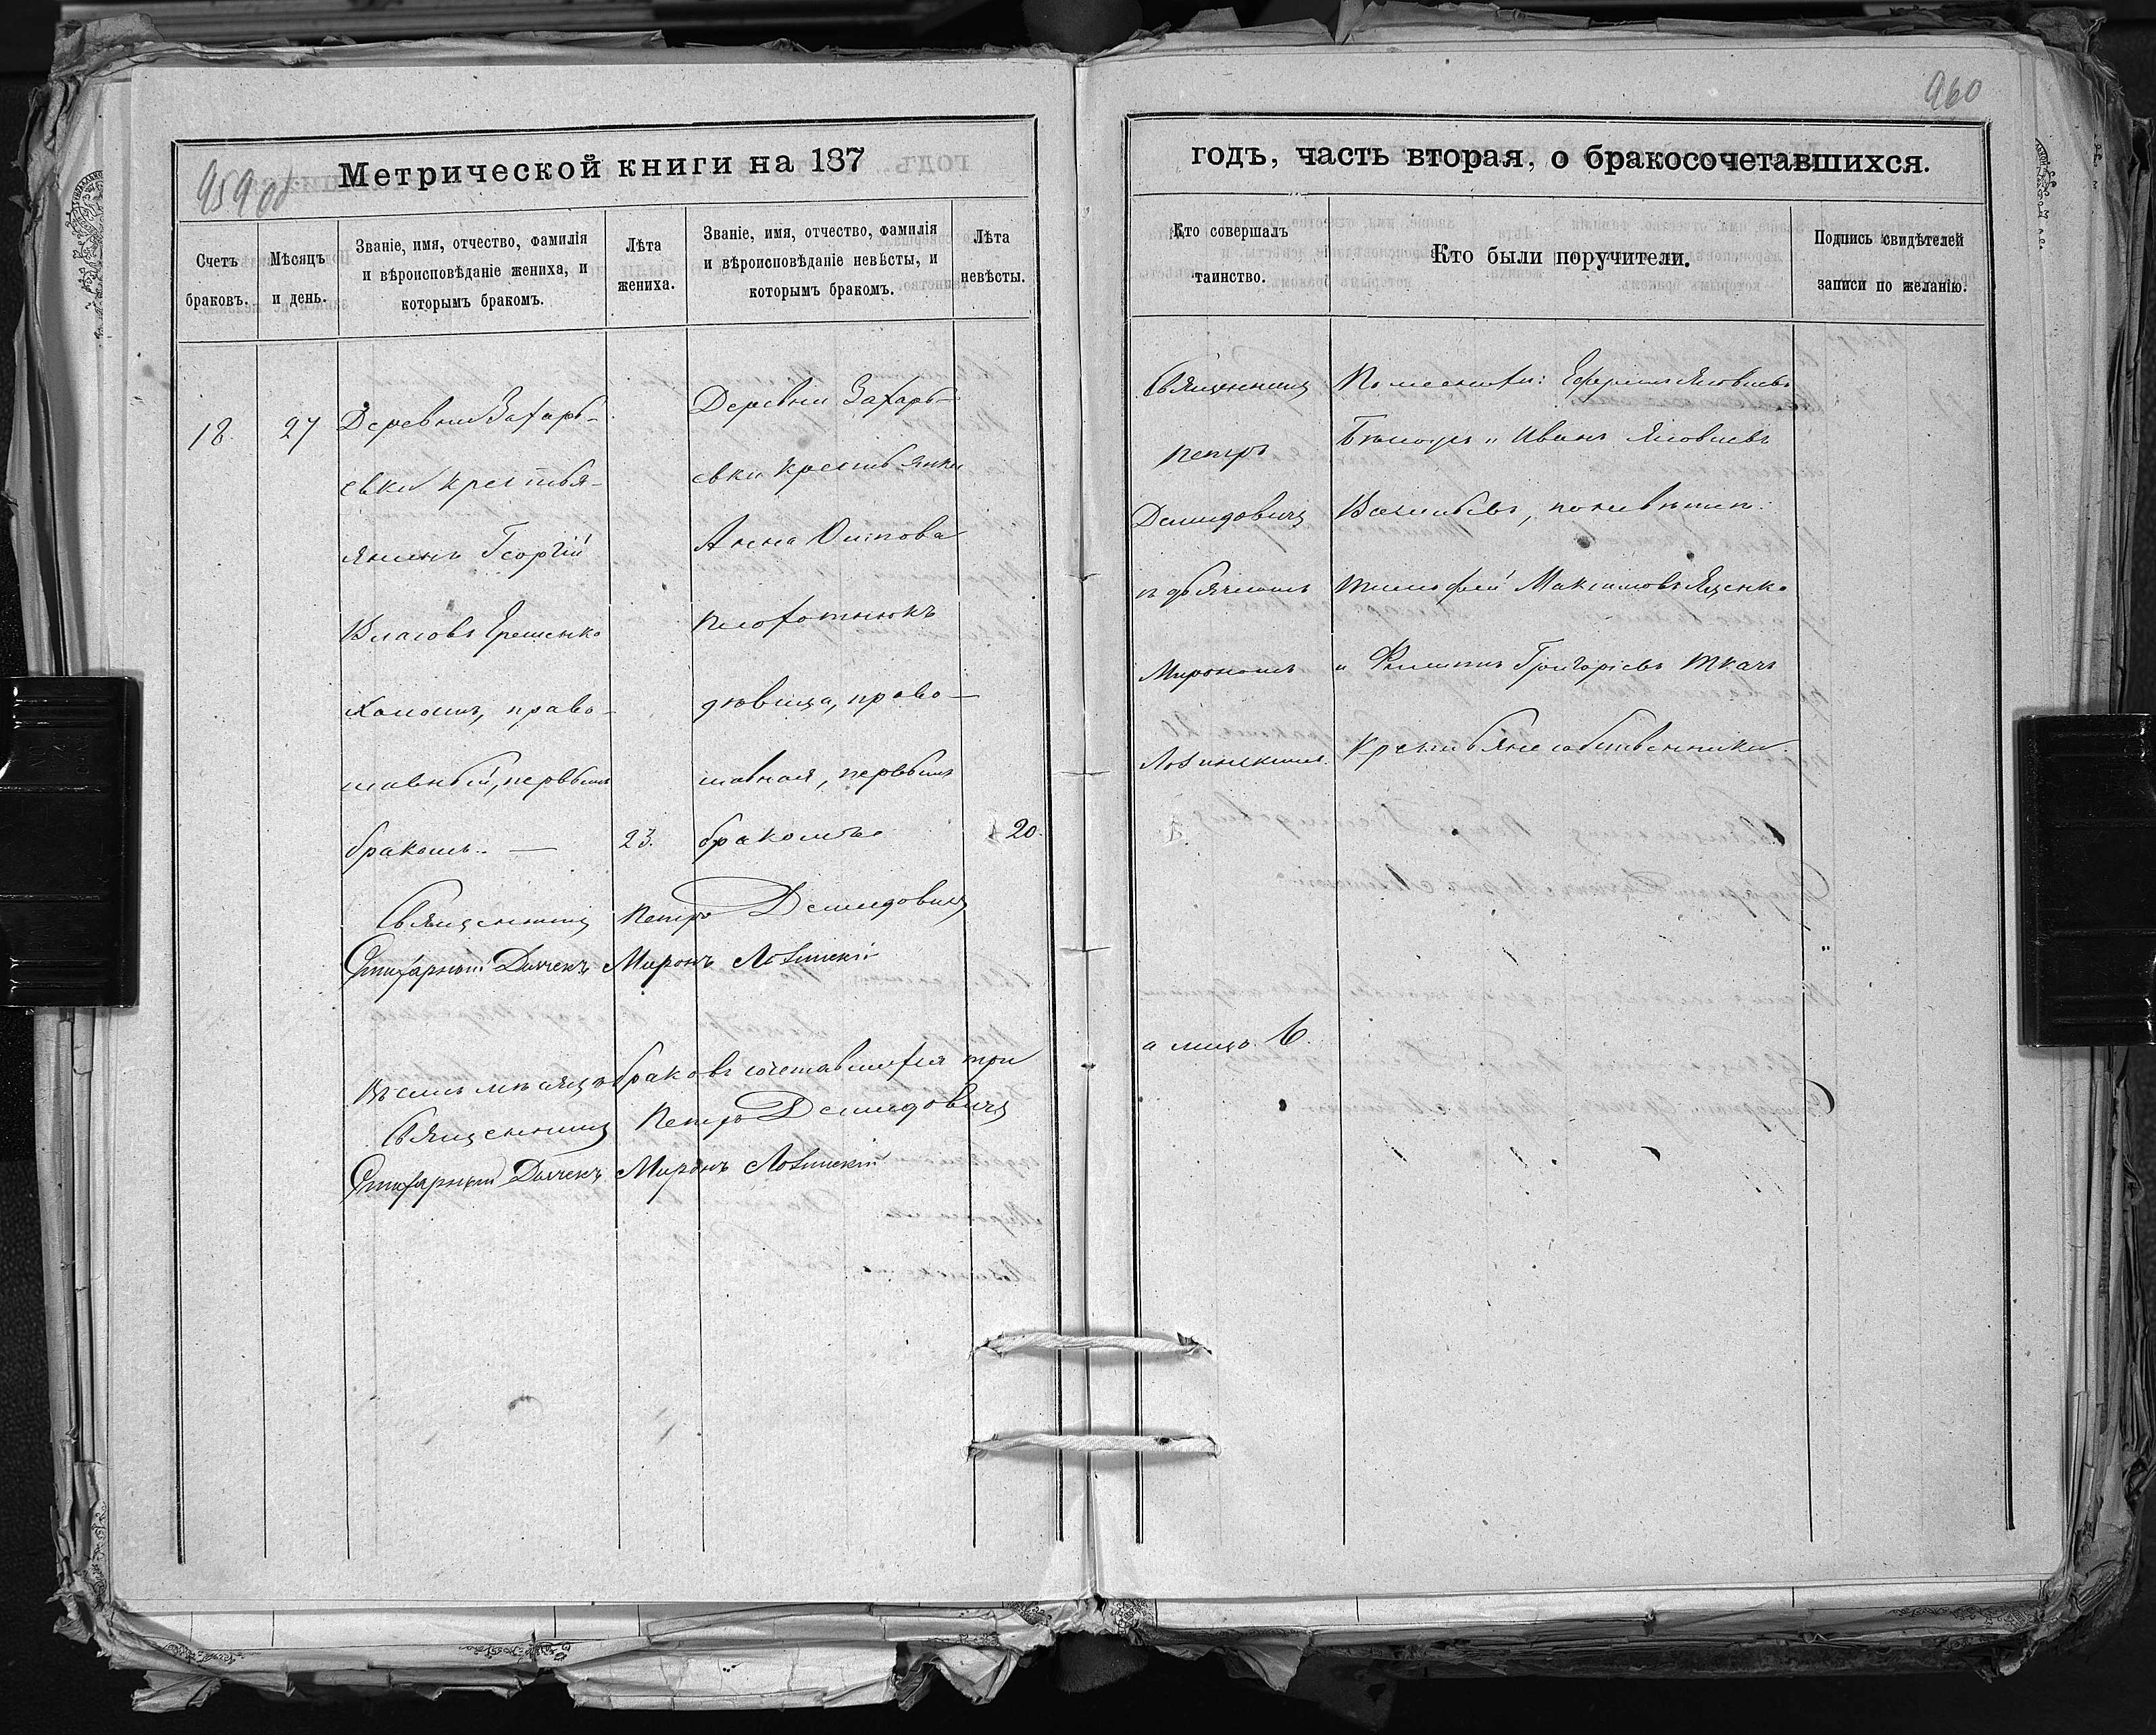 960
Метрической книги на 187
годъ, часть вторая, о бракосочетавшихся.
Счетъ браковъ.
Мѣсяцъ и день.
Званіе, имя, отчество, фамилія
и вѣроисповѣданіе жениха, и
которымъ бракомъ.
Лѣта жениха.
Званіе, имя, отчество, фамилія
и вѣроисповѣданіе невѣсты, и
которымъ бракомъ.
Лѣта невѣсты.
Кто совершалъ
таинство.
Кто были поручители.
Подпись свидѣтелей
записи по желанію.
18.
27
Деревни Захарь-
евки крестья-
янинъ Георгій
Власовъ Ерешенко
холостъ, право-
славный, первымъ
бракомъ. —
23.
Деревни Захарь-
евки крестьянка
Анна
дѣвица, право-
славная, первымъ
бракомъ
20.
Священникъ
Петръ
Демидовичъ
съ дьячкомъ
Мирономъ
Лозинскимъ.
По женихѣ: Ефремъ Яковлевъ
и Иванъ Яковлевъ
Васильевъ, по невѣстѣ:
Тимофей Максимовъ Яценко
и Филиппъ Григоріевъ Ткачъ
крестьяне собственники.
Священникъ Петръ Демидовичъ
Стихарный Дьячекъ Миронъ Лозинскій
Въ семъ мѣсяцѣ браковъ сочетавшихся три
а лицъ 6.
Священникъ Петръ Демидовичъ
Стихарный Дьячекъ Миронъ Лозинскій